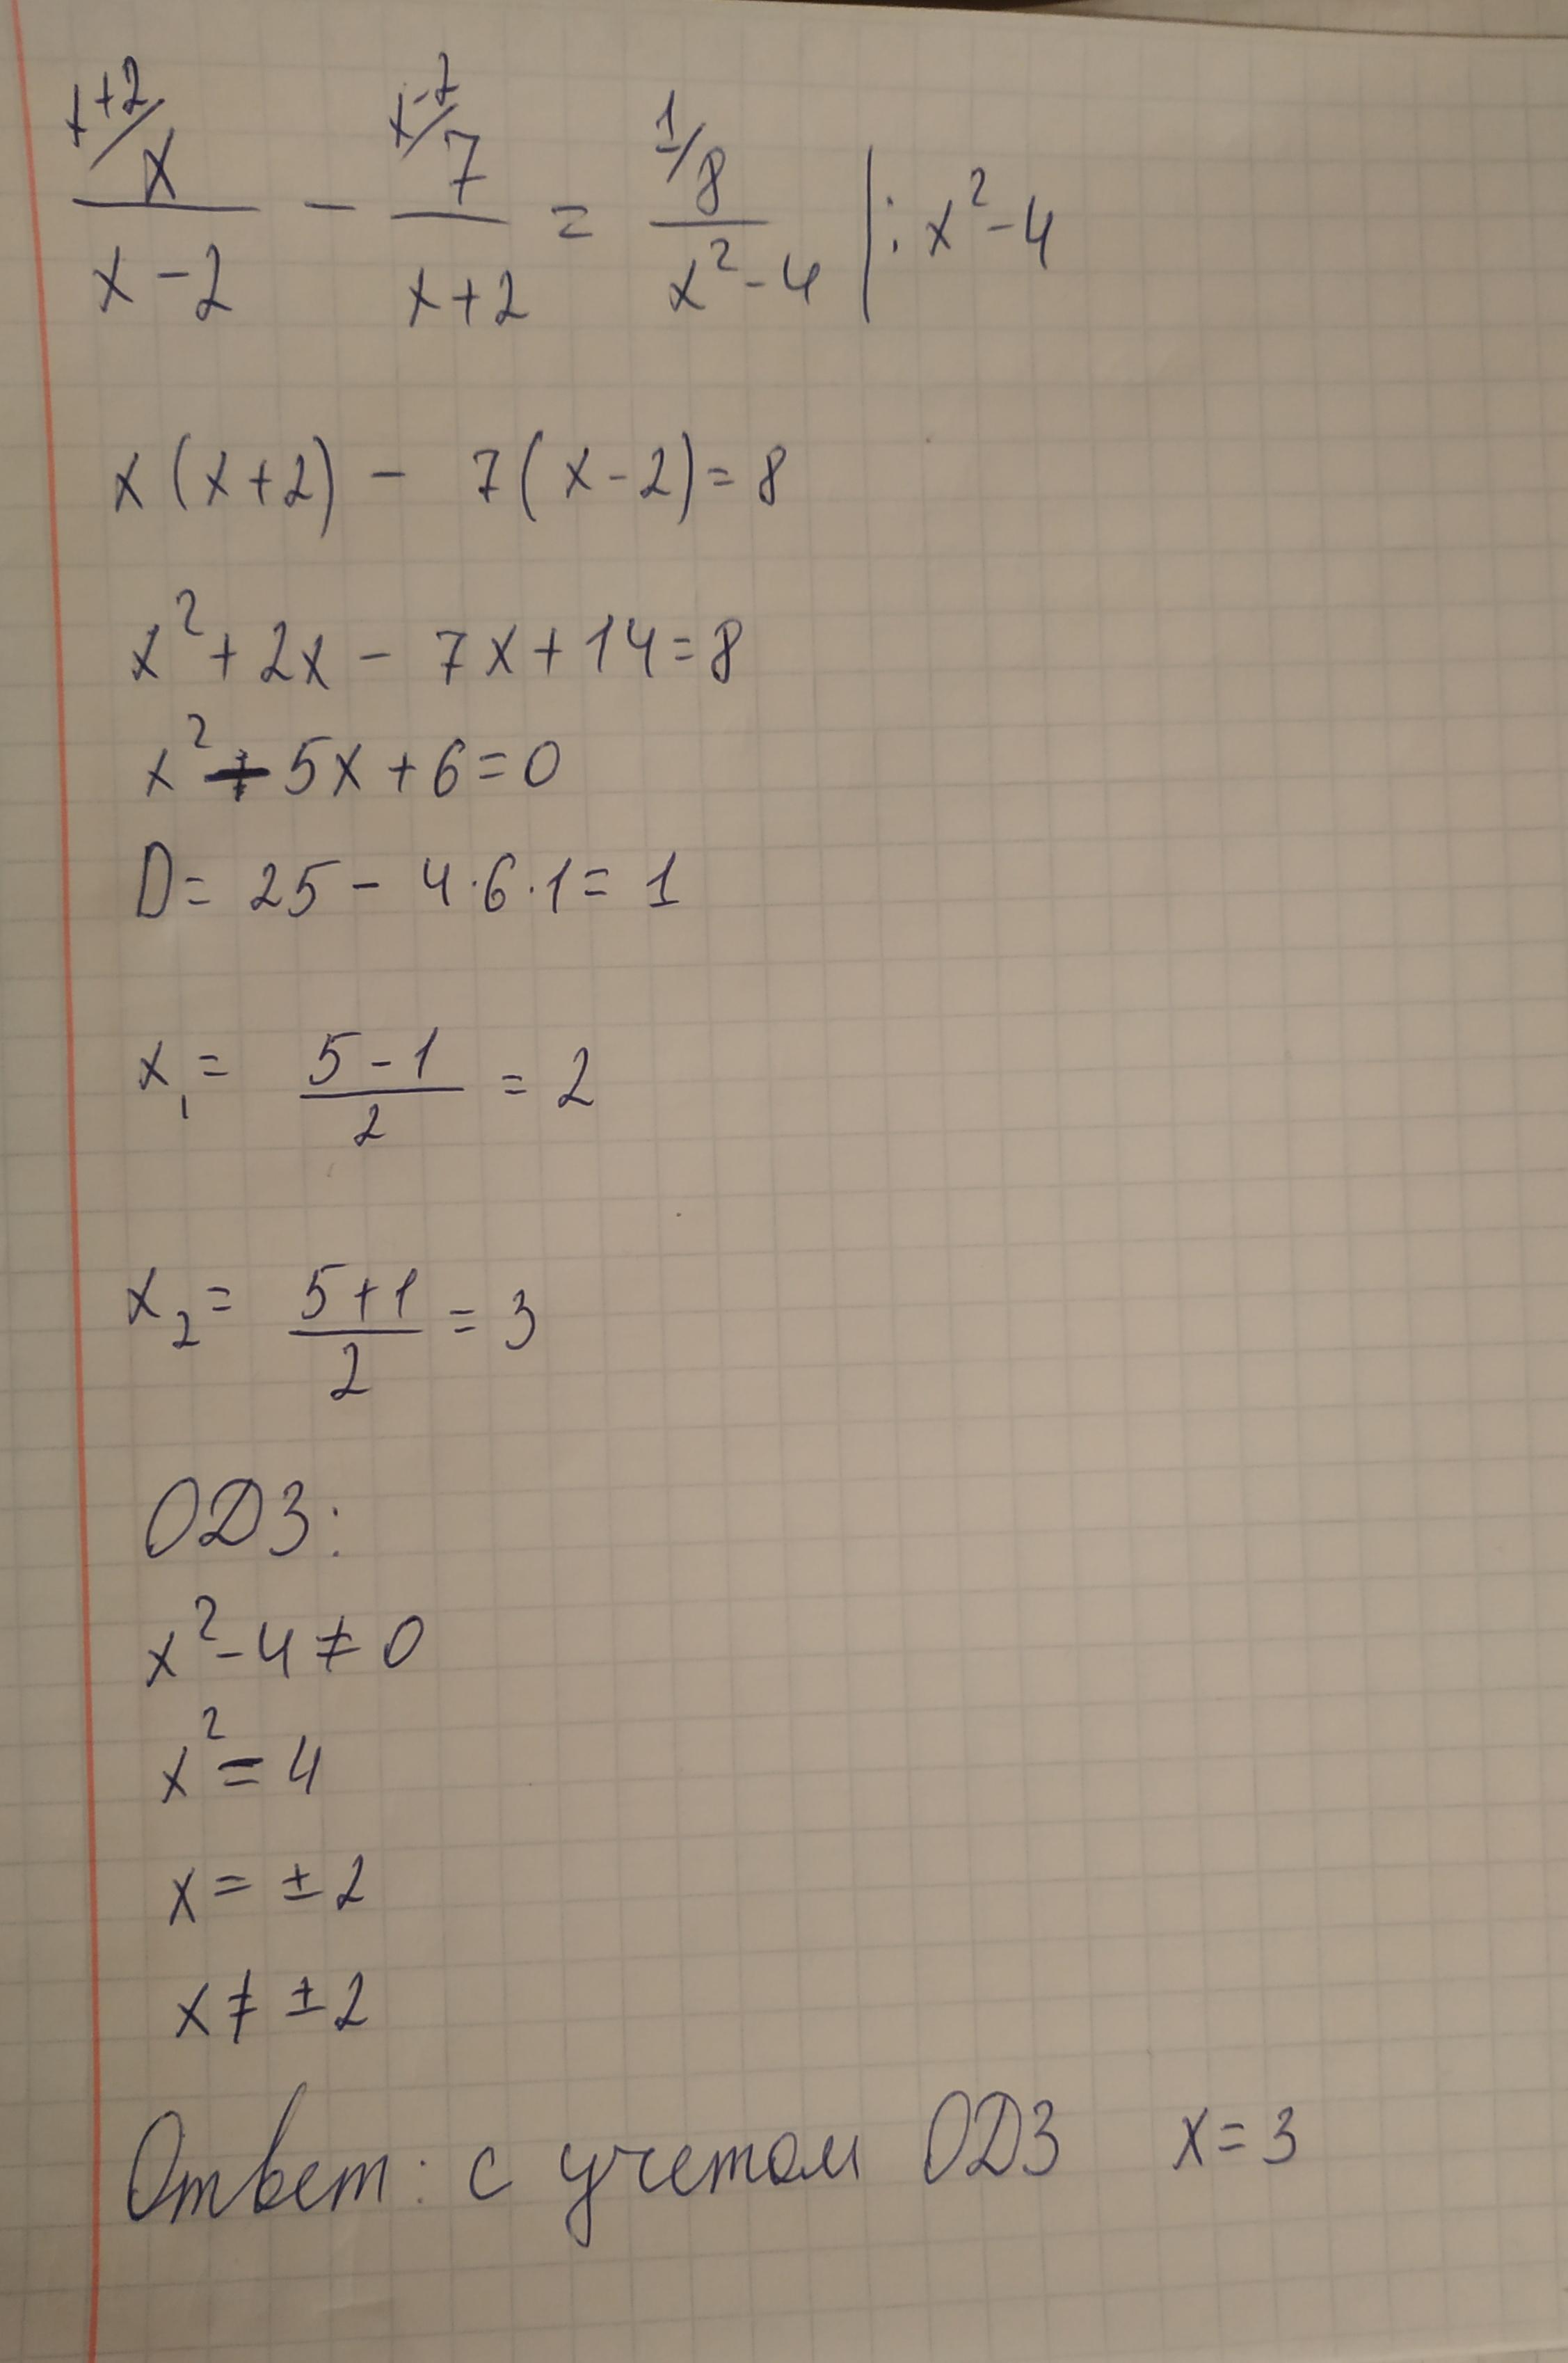 x+2/ x / x-2 - x-2/ 7 / x+2 = 1/ 8 / x²-4 | : x²-4
x(x+2) - 7(x-2)=8
x²+2x-7x+14=8
x²-5x+6=0
D=25-4·6·1=1
x₁= 5-1 / 2 =2
x₂= 5+1 / 2 =3
ОДЗ:
x²-4≠0
x²=4
x=±2
x≠±2
Ответ: с учетом ОДЗ x=3